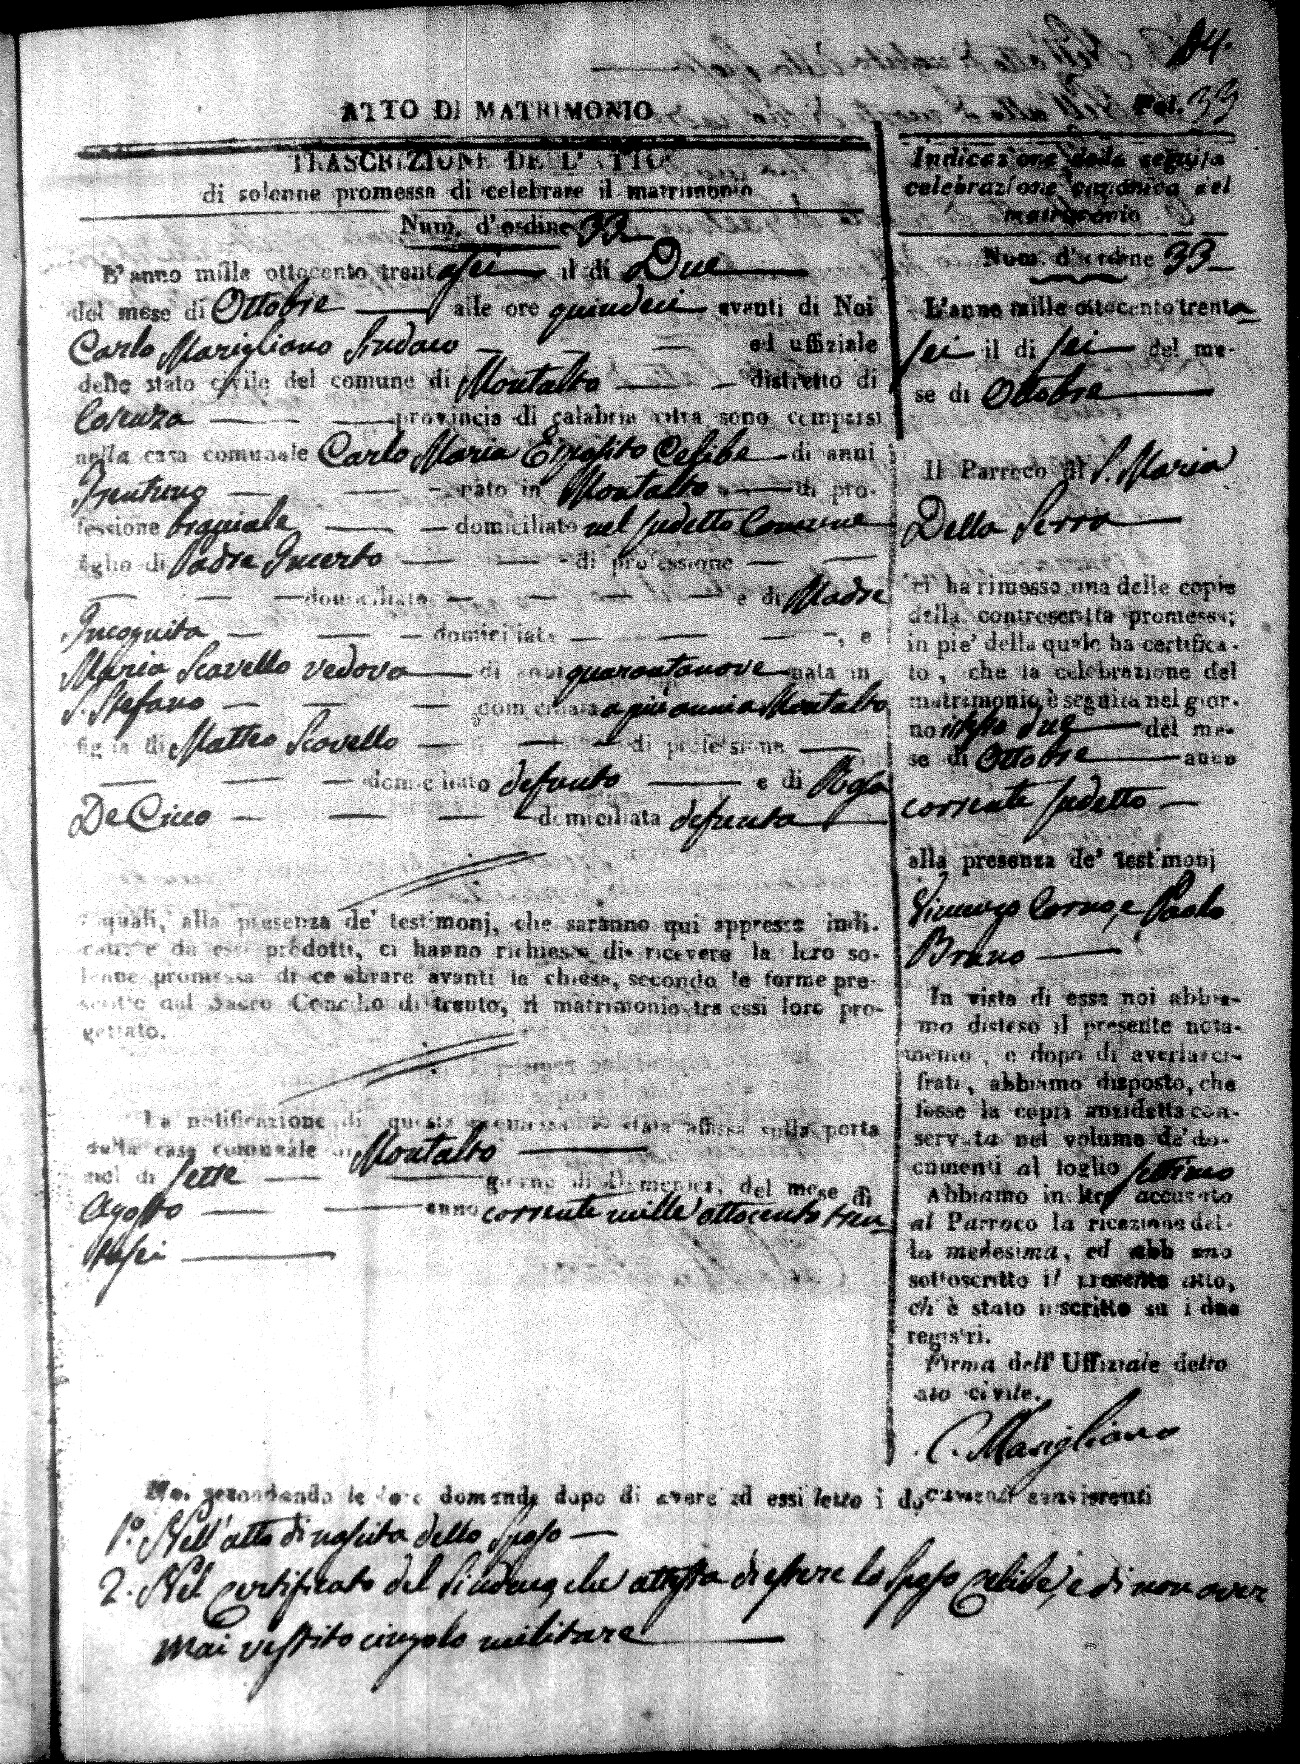 84.
Fol. 33
ATTO DI MATRIMONIO
TRASCRIZIONE DELL'ATTO
di solenne promessa di celebrare il matrimonio
Num. d'ordine 33
L'anno mille ottocento trentasei il di Due
del mese di Ottobre alle ore quindeci avanti di Noi
Carlo Marigliano Sindaco ed uffiziale
dello stato civile del comune di Montalto distretto di
Cosenza provincia di calabria citra sono comparsi
nella casa comunale Carlo Maria Esposito Celibe di anni
Trentuno nato in Montalto di pro-
fessione bracciale domiciliato nel sudetto Comune
figlio di Padre Incerto di professione
domiciliato e di Madre
Incognita domiciliata , e
Maria Scavello vedova di anni quarantanove nata in
S. Stefano domiciliata a più anni a Montalto
figlia di Matteo Scavello di professione
domiciliato defunto e di Rosa
De Cicco domiciliata defunta
I quali, alla presenza de' testimonj, che saranno qui appresso indi-
cati e da essi prodotti, ci hanno richiesto di ricevere la loro so-
lenne promessa di celebrare avanti la chiesa, secondo le forme pre-
scritte dal Sacro Concilio di trento, il matrimonio tra essi loro pro-
gettato.
La notificazione di questa promessa è stata affissa sulla porta
della casa comunale di Montalto
nel di sette giorno di Domenica, del mese di
Agosto anno corrente mille ottocento tren
tasei
Indicazione della seguita
celebrazione canonica del
matrimonio
Num. d'ordine 33
L'anno mille ottocento trenta
sei il di sei del me-
se di Ottobre
Il Parroco di S. Maria
Della Serra
ci ha rimesso una delle copie
della controscritta promessa;
in pie' della quale ha certifica-
to, che la celebrazione del
matrimonio è seguita nel gior-
no due del me-
se di Ottobre anno
corrente sudetto
alla presenza de' testimonj
Vincenzo Coruso, e Paolo
Bruno
In vista di essa noi abbia-
mo disteso il presente nota-
mento, e dopo di averla ci-
frata, abbiamo disposto, che
fosse la copia anzidetta con-
servata nel volume de' do-
cumenti al foglio settimo
Abbiamo inoltre accusato
al Parroco la ricezione del-
la medesima, ed abbiamo
sottoscritto il presente atto,
ch'è stato inscritto su i due
registri.
Firma dell' Uffiziale dello
stato civile.
C. Marigliano
Noi secondando le loro domande dopo di avere ad essi letto i documenti consistenti
1.º Nell'atto di nascita dello Sposo
2. Nel Certificato del Sindaco, che attesta di essere lo Sposo Celibe, e di non aver
mai vestito cingolo militare